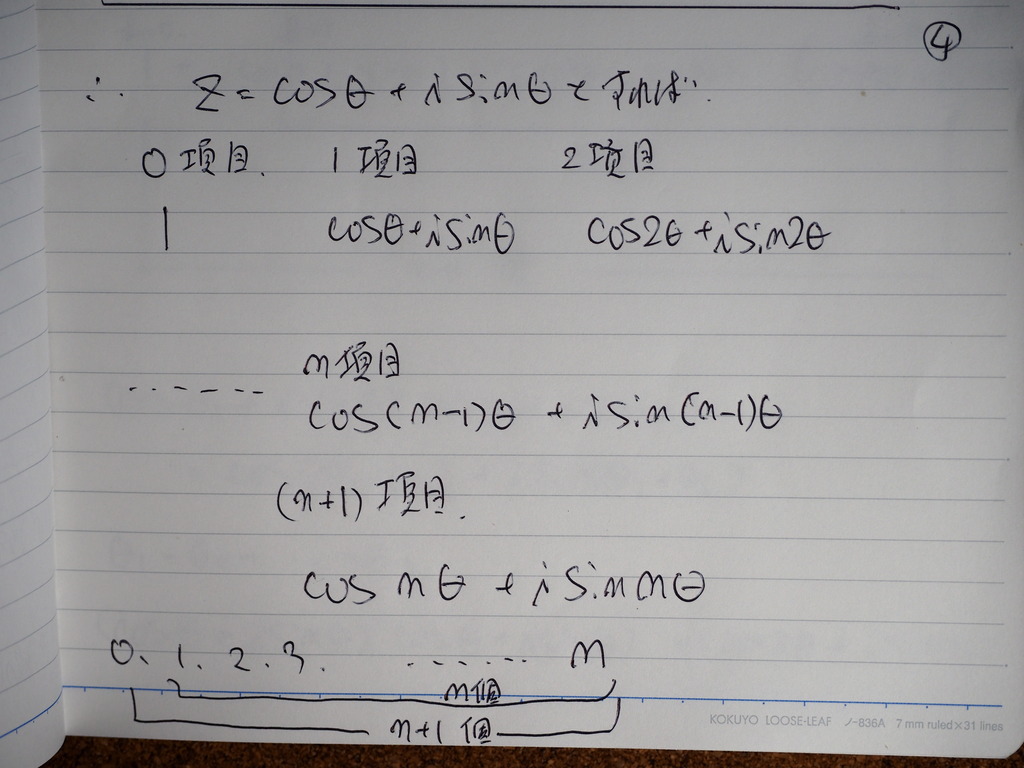 ④
∴ z = cosθ + i sinθ とすれば
0項目. 1項目 2項目
1 cosθ + i sinθ cos2θ + i sin2θ
------ n項目
cos(n-1)θ + i sin(n-1)θ
(n+1)項目.
cos nθ + i sin nθ
0. 1. 2. 3. ....... n
n個
n+1個
KOKUYO LOOSE-LEAF ノ-836A 7 mm ruled×31 lines